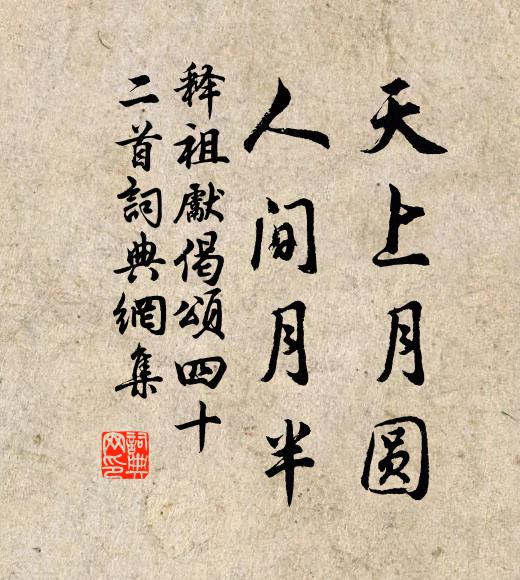 天上月圆
人间月半
释祖獻偈頌四十
二首詞典網集
詞典
网印